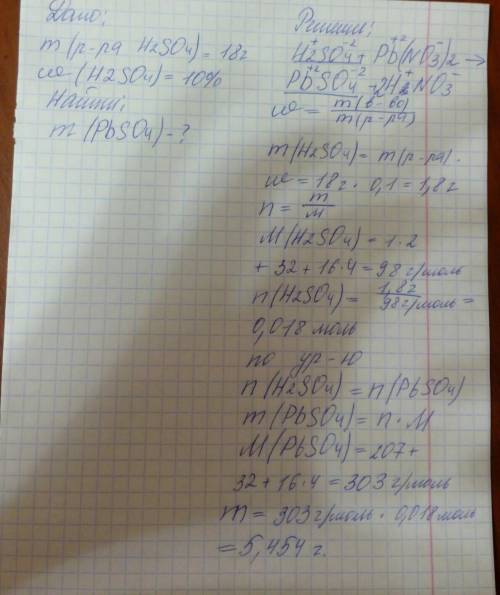 Дано:
m(р-ра H2SO4) = 18г
w(H2SO4) = 10%
Найти:
m(PbSO4) - ?
Решение:
H2⁺SO4⁻² + Pb⁺²(NO3⁻)2 →
Pb⁺²SO4⁻² + 2H⁺NO3⁻
w = m(в-во)/m(р-ра)
m(H2SO4) = m(р-ра) ·
w = 18г · 0,1 = 1,8г
n = m/M
M(H2SO4) = 1·2
+ 32 + 16·4 = 98 г/моль
n(H2SO4) = 1,8г/98г/моль =
0,018 моль
по ур-ю
n(H2SO4) = n(PbSO4)
m(PbSO4) = n · M
M(PbSO4) = 207 +
32 + 16·4 = 303 г/моль
m = 303 г/моль · 0,018 моль
= 5,454 г.